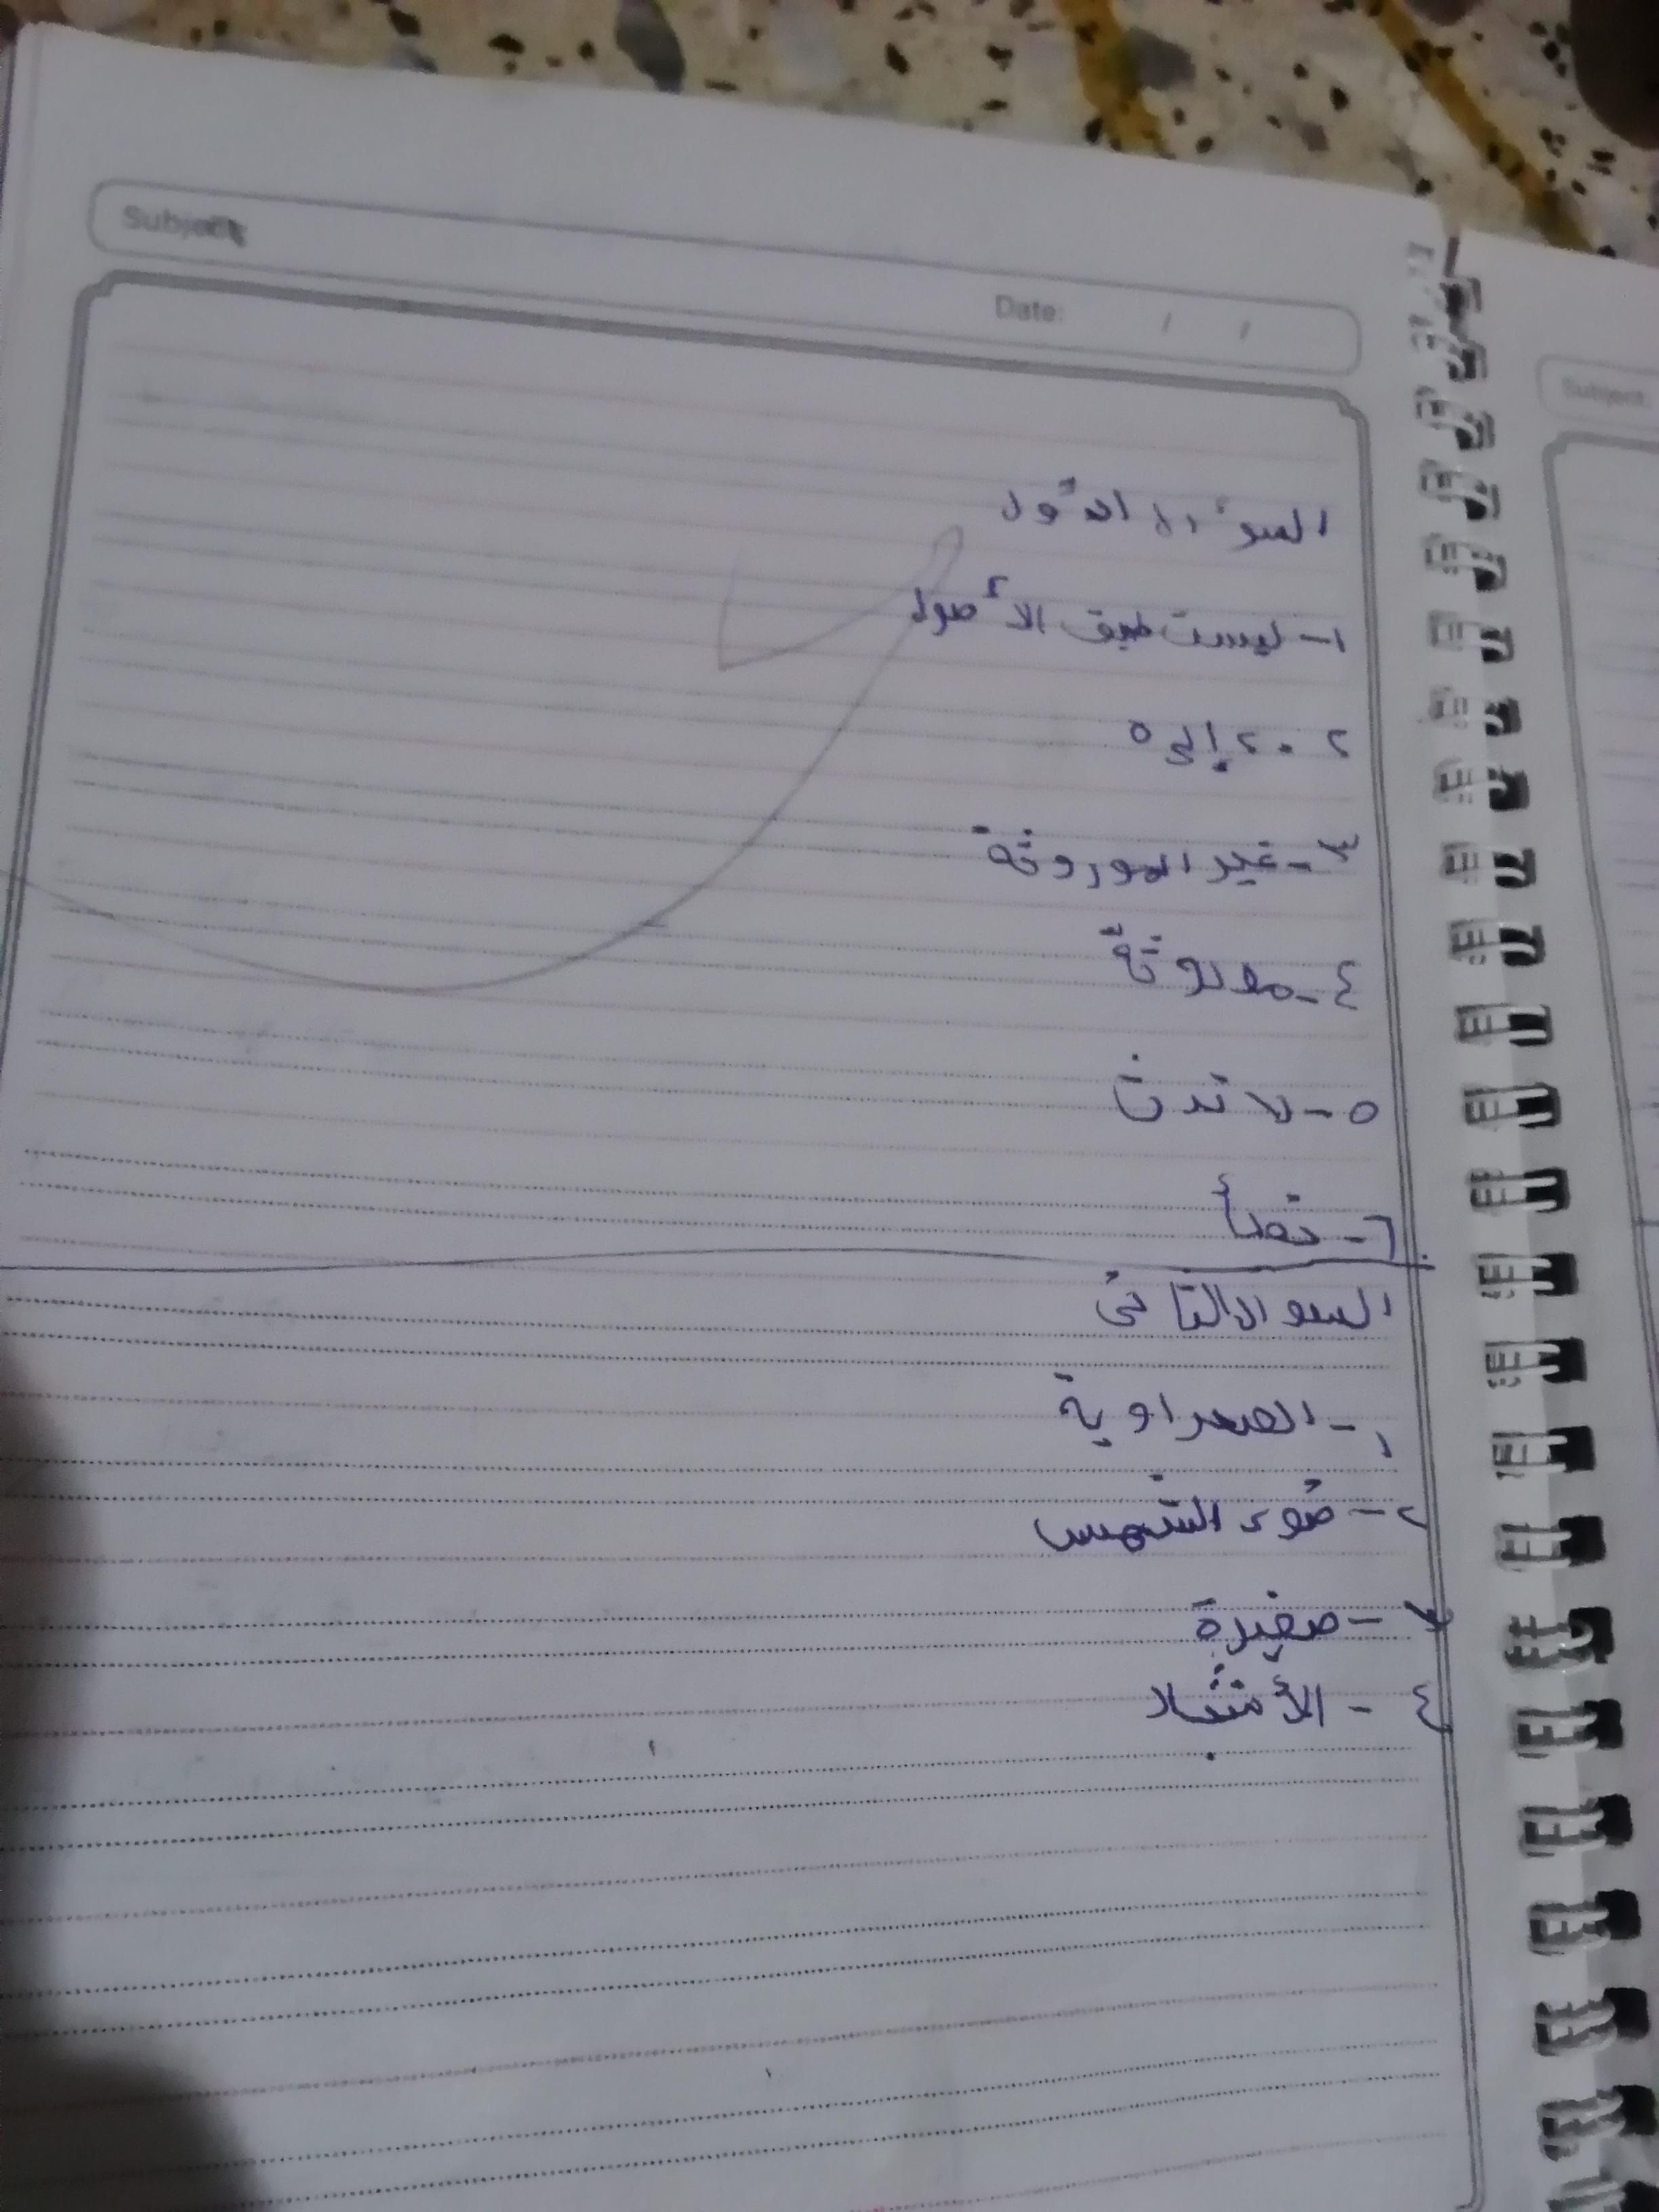 Subject:
Date: / /
السؤال الأول
١- ليست طبق الأصول
٢ - ٢ إلى ٥
٣- غير الموروثة
٤- ملوثة
٥- لا تدن
٦- خطأ
السوال الثاني
١- الصحراوية
٢- ضوء الشمس
٣- صغيرة
٤- الأنثىاد
Subject: